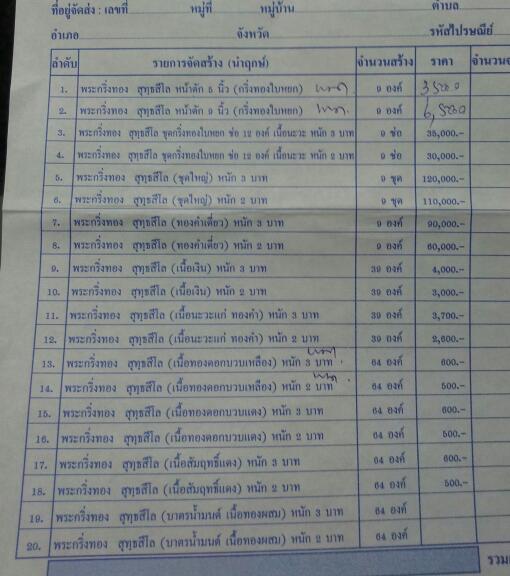 ที่อยู่จัดส่ง : เลขที่ หมู่ที่ หมู่บ้าน ตำบล
อำเภอ จังหวัด รหัสไปรษณีย์
ลำดับ รายการจัดสร้าง (นำฤกษ์) จำนวนสร้าง ราคา
1. พระกริ่งทอง สุทฺธสีโล หน้าตัก 5 นิ้ว (กริ่งทองใบหยก) ๙ องค์
2. พระกริ่งทอง สุทฺธสีโล หน้าตัก 9 นิ้ว (กริ่งทองใบหยก) ๙ องค์
3. พระกริ่งทอง สุทฺธสีโล ชุดกริ่งทองใบหยก ช่อ 12 องค์ เนื้อนะวะ หนัก 3 บาท ๙ ช่อ 35,000.-
4. พระกริ่งทอง สุทฺธสีโล ชุดกริ่งทองใบหยก ช่อ 12 องค์ เนื้อนะวะ หนัก 2 บาท ๙ ช่อ 30,000.-
5. พระกริ่งทอง สุทฺธสีโล (ชุดใหญ่) หนัก 3 บาท ๙ ชุด 120,000.-
6. พระกริ่งทอง สุทฺธสีโล (ชุดใหญ่) หนัก 2 บาท ๙ ชุด 110,000.-
7. พระกริ่งทอง สุทฺธสีโล (ทองคำเดี่ยว) หนัก 3 บาท ๙ องค์ 90,000.-
8. พระกริ่งทอง สุทฺธสีโล (ทองคำเดี่ยว) หนัก 2 บาท ๙ องค์ 60,000.-
9. พระกริ่งทอง สุทฺธสีโล (เนื้อเงิน) หนัก 3 บาท 39 องค์ 4,000.-
10. พระกริ่งทอง สุทฺธสีโล (เนื้อเงิน) หนัก 2 บาท 39 องค์ 3,000.-
11. พระกริ่งทอง สุทฺธสีโล (เนื้อนะวะแก่ ทองคำ) หนัก 3 บาท 39 องค์ 3,700.-
12. พระกริ่งทอง สุทฺธสีโล (เนื้อนะวะแก่ ทองคำ) หนัก 2 บาท 39 องค์ 2,600.-
13. พระกริ่งทอง สุทฺธสีโล (เนื้อทองดอกบวบเหลือง) หนัก 3 บาท 64 องค์ 600.-
14. พระกริ่งทอง สุทฺธสีโล (เนื้อทองดอกบวบเหลือง) หนัก 2 บาท 64 องค์ 500.-
15. พระกริ่งทอง สุทฺธสีโล (เนื้อทองดอกบวบแดง) หนัก 3 บาท 64 องค์ 600.-
16. พระกริ่งทอง สุทฺธสีโล (เนื้อทองดอกบวบแดง) หนัก 2 บาท 64 องค์ 500.-
17. พระกริ่งทอง สุทฺธสีโล (เนื้อสัมฤทธิ์แดง) หนัก 3 บาท 64 องค์ 600.-
18. พระกริ่งทอง สุทฺธสีโล (เนื้อสัมฤทธิ์แดง) หนัก 2 บาท 64 องค์ 500.-
19. พระกริ่งทอง สุทฺธสีโล (บาตรน้ำมนต์ เนื้อทองผสม) หนัก 3 บาท 64 องค์
20. พระกริ่งทอง สุทฺธสีโล (บาตรน้ำมนต์ เนื้อทองผสม) หนัก 2 บาท 64 องค์